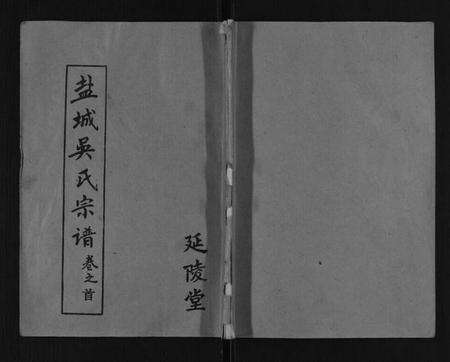 盐城吳氏宗谱 卷之首
延陵堂